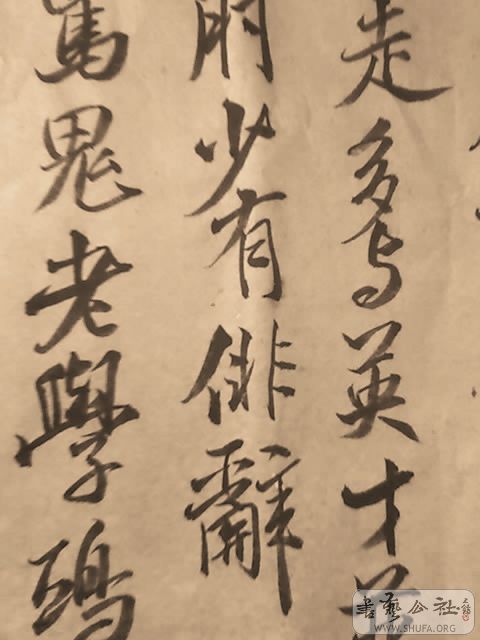 走多与英才
少有俳辭
鬼老學
書藝公社
WWW.SHUFA.ORG